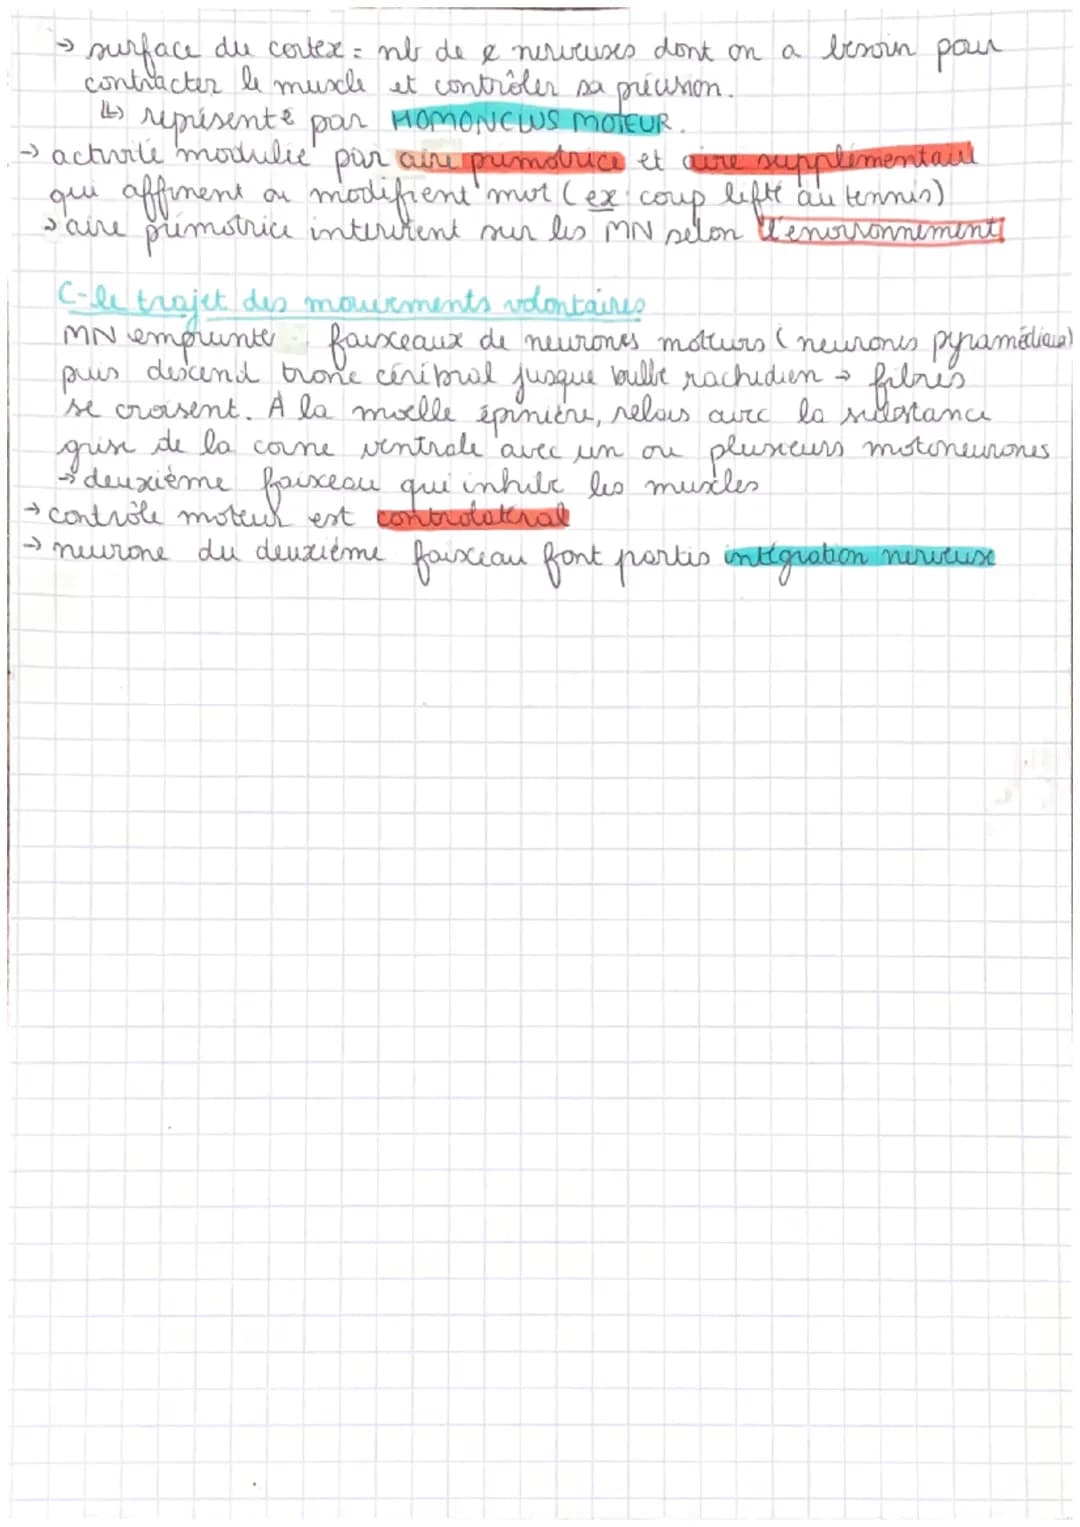 → surface du cortex = nb de ȼ nerveuses dont on a besoin pour
contracter le muscle et contrôler sa précision.
↳ représenté par HOMONCLUS MOTEUR.
→ activité modulée par aire prémotrice et aire supplémentaire
qui affinent ou modifient mvt (ex: coup lifté au tennis)
→ aire prémotrice intervient sur les MN selon l'environnement
C-le trajet des mouvements volontaires
MN emprunte faisceaux de neurones moteurs (neurones pyramédiaux)
puis descend tronc cérébral jusque bulbe rachidien → fibres
se croisent. À la moelle épinière, relais avec la substance
grise de la corne ventrale avec un ou plusieurs motoneurones
→ deuxième faisceau qui inhibe les muscles
→ contrôle moteur est controlatéral
→ neurone du deuxième faisceau font partis intégration nerveuse